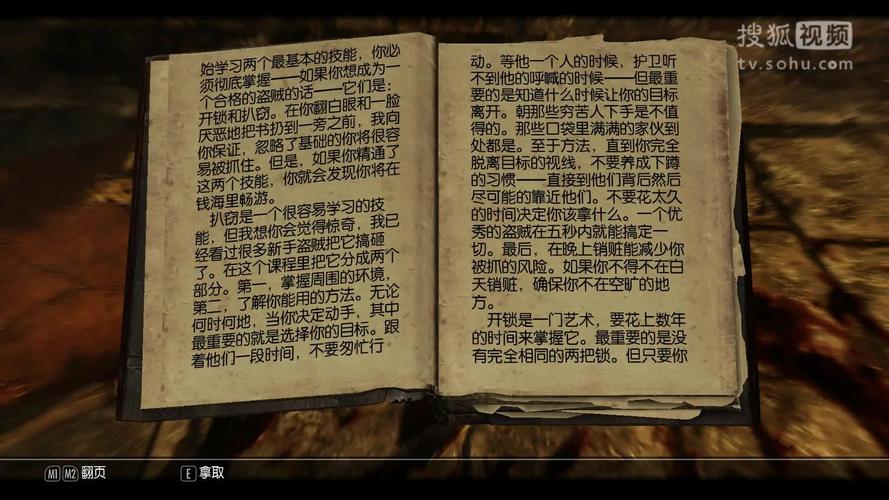 搜狐视频
tv.sohu.com
始学习两个最基本的技能，你必
须彻底掌握——如果你想成为一
个合格的盗贼的话——它们是：
开锁和扒窃。在你翻白眼和一脸
厌恶地把书扔到一旁之前，我向
你保证，忽略了基础的你将很容
易被抓住。但是，如果你精通了
这两个技能，你就会发现你将在
钱海里畅游。
扒窃是一个很容易学习的技
能，但我想你会觉得惊奇，我已
经看过很多新手盗贼把它搞砸
了。在这个课程里把它分成两个
部分。第一，掌握周围的环境，
第二，了解你能用的方法。无论
何时何地，当你决定动手，其中
最重要的就是选择你的目标。跟
着他们一段时间，不要匆忙行
动。等他一个人的时候，护卫听
不到他的呼喊的时候——但最重
要的是知道什么时候让你的目标
离开。朝那些穷苦人下手是不值
得的。那些口袋里满满的家伙到
处都是。至于方法，直到你完全
脱离目标的视线，不要养成下蹲
的习惯——直接到他们背后然后
尽可能的靠近他们。不要花太久
的时间决定你该拿什么。一个优
秀的盗贼在五秒内就能搞定一
切。最后，在晚上销赃能减少你
被抓的风险。如果你不得不在白
天销赃，确保你不在空旷的地
方。
开锁是一门艺术，要花上数年
的时间来掌握它。最重要的是没
有完全相同的两把锁。但只要你
M1 M2 翻页
E 拿取